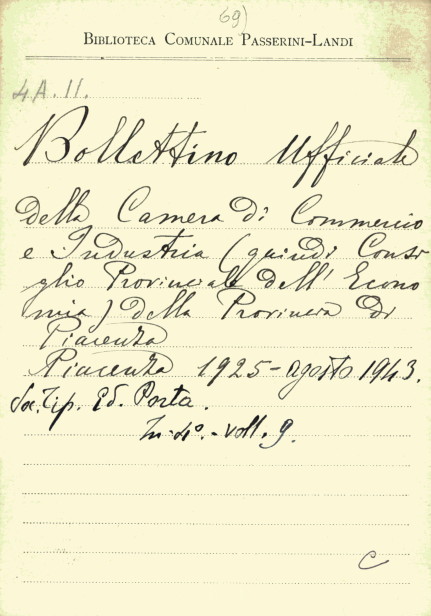 69)
BIBLIOTECA COMUNALE PASSERINI-LANDI
4.A.II.
Bollettino Ufficiale
della Camera di Commercio
e Industria (quindi Consi
glio Provinciale dell' Econo
mia) della Provincia di
Piacenza
Piacenza 1925 - agosto 1943.
Soc. Tip. Ed. Porta.
In-4º. - voll. 9.
C